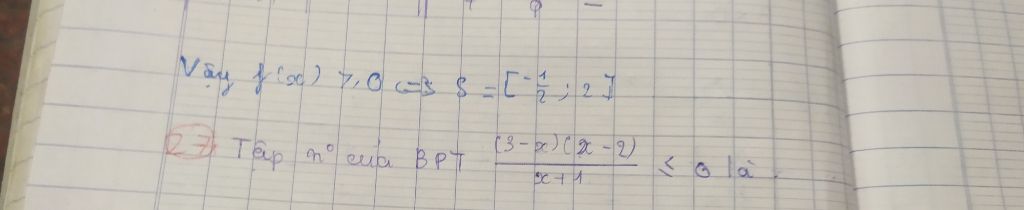 Vậy f(x) ≥ 0 <=> S = [-1/2 ; 2]
27 Tập n° của BPT (3-x)(x-2)/x+1 ≤ 0 là